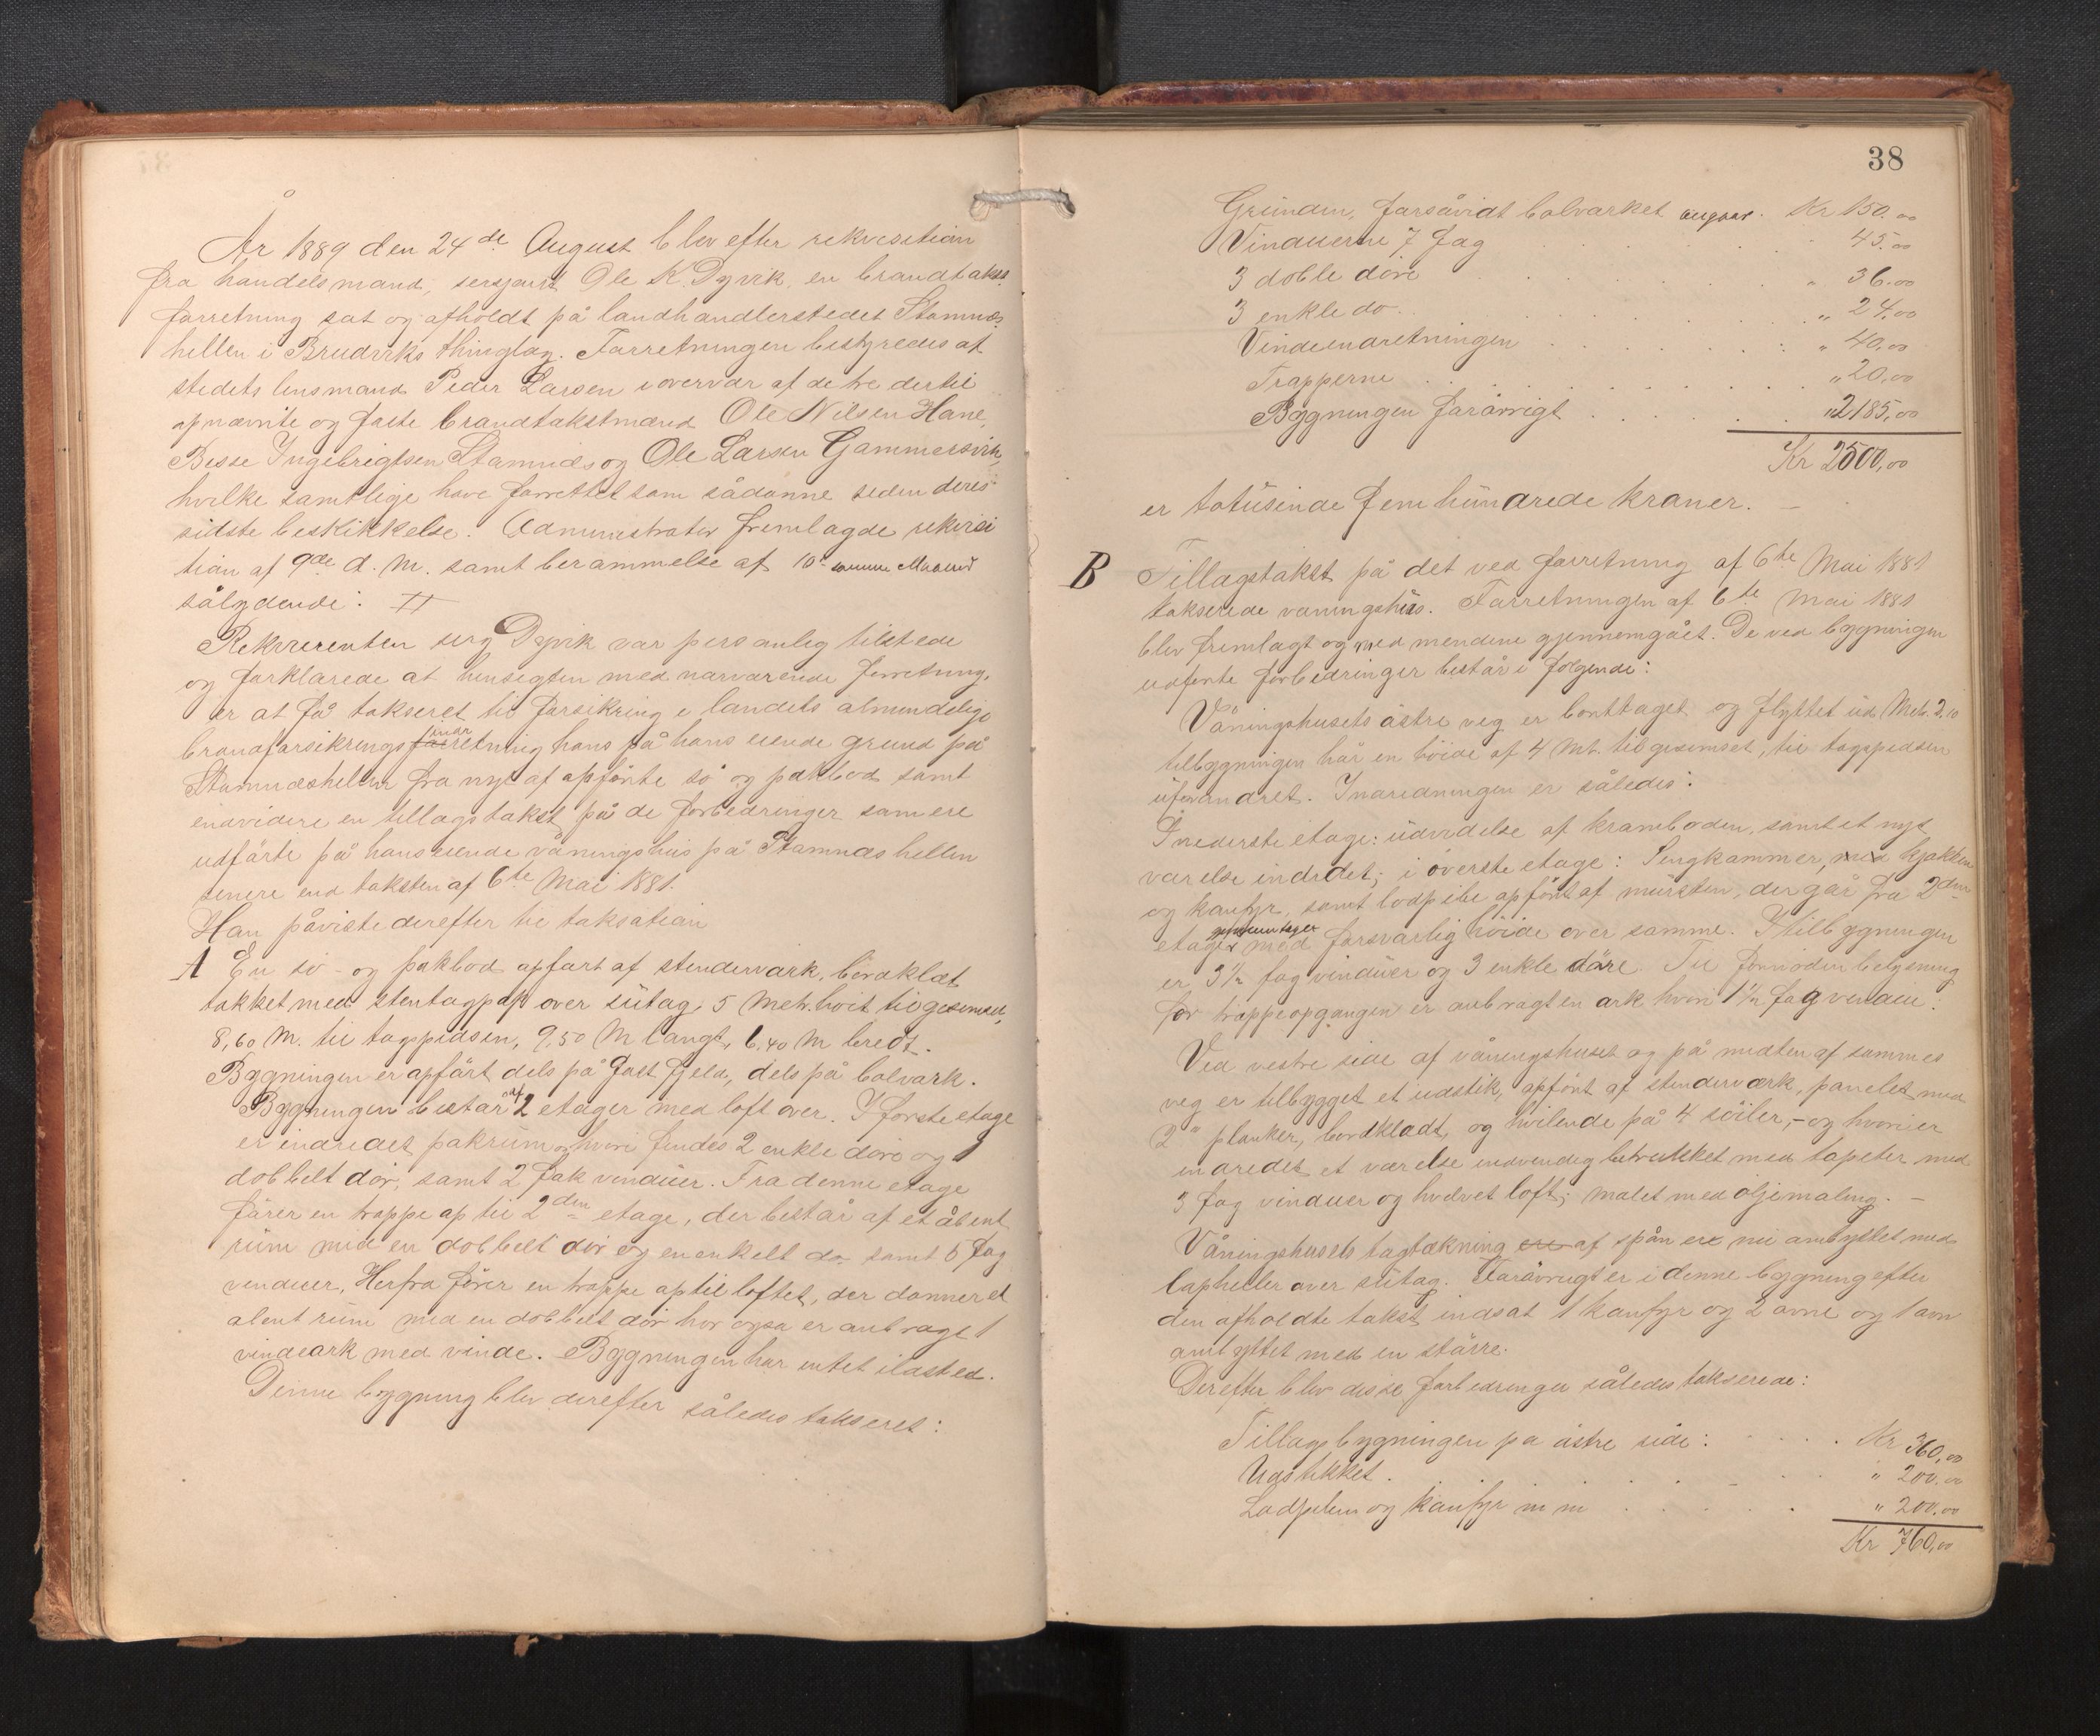 År 1889 den 24de August blev efter rekvisition
fra handelsmand, sersjant Ole K. Dyvik, en brandtakst
forretning sat og afholdt på landhandlerstedet Stamnæs
hellen i Bruviks thinglag. Forretningen bestyredes af
stedets lensmand Peder Larsen i overvær af de tre dertil
opnævnte og faste brandtakstmænd Ole Nilsen Hane,
Besse Ingebrigtsen Stamnæs og Ole Larsen Gammersvik,
hvilke samtlige have forrettet som sådanne siden deres
sidste beskikkelse. Administrator fremlagde rekvisi
tion af 9de d. M. samt berammelse af 10 samme Maaned
sålydende: #
Rekvirenten serg Dyvik var personlig tilstede
og forklarede at hensigten med nærværende forretning
er at få takseret til forsikring i landets almindelige
brandforsikringsindretning hans på hans eiende grund på
Stamnæshellen fra nyt af opførte sø og pakbod samt
endvidere en tillagstakst på de forbedringer som ere
udførte på hans eiende våningshus på Stamnæshellen
senere end taksten af 6te Mai 1881.
Han påviste derefter til taksation
A En sø- og pakbod opført af stenderværk, bordklædt
takket med stentagpap over sutag, 5 Metr. høit til gesimset,
8,60 M. til tagspidsen, 9,50 M langt, 6.40 M bredt.
Bygningen er opført dels på fast fjeld, dels på bolværk.
Bygningen består af 2 etager med loft over. I første etage
er indredet pakrum hvori findes 2 enkle døre og 1
dobbelt dør, samt 2 fak vinduer. Fra denne etage
fører en trappe op til 2den etage, der består af et åbent
rum med en dobbelt dør og en enkelt do samt 5 fag
vinduer, Herfra fører en trappe op til loftet, der danner et
åbent rum med en dobbelt dør hvor også er anbragt 1
vindeark med vinde. Bygningen har intet ildsted.
Denne bygning blev derefter således takseret:
38
Grunden, forsåvidt bolværket angaar. Kr 150.00
Vinduerne 7 fag . . . 45.00
3 doble døre . . . „ 36.00
3 enkle do . . . „ 24.00
Vindeindretningen . . . „ 40,00
Trapperne . . . „ 20,00
Bygningen forøvrigt . . . „ 2185,00
Kr 2500,00
er totusinde fem hundrede kroner. –
B Tillagstakst på det ved forretning af 6te Mai 1881
takserede våningshus. Forretningen af 6te Mai 1881
blev fremlagt og med mændene gjennemgået. De ved bygningen
udførte forbedringer består i følgende:
Våningshusets østre veg er borttaget og flyttet ud Metr. 2,10
tilbygningen har en høide af 4 Mt. til gesimset, til tagspidsen
uforandret. Indredningen er således:
I nederste etage: udvidelse af kramboden, samt et nyt
værelse indredet; i øverste etage: Sengkammer, med kjøkken
og komfyr, samt lodpibe opført af mursten, der går fra 2den
etage gjennem taget med forsvarlig høide over samme. I tilbygningen
er 3½ fag vinduer og 3 enkle døre. Til fornøden belysning
for trappeopgangen er anbragt en ark hvori 1½ fag vindu:
Ved vestre side af våningshuset og på midten af sammes
veg er tilbygget et udstik, opført af stenderværk, panelet med
2" planker, bordklædt, og hvilende på 4 søiler, – og hvori er
indredet et værelse indvendig betrukket med tapeter med
3 fag vinduer og hvelvet loft; malet med oljemaling. –
Våningshusets tagtækning ere af spån er nu ombyttet med
lapheller over sutag. Forøvrigt er i denne bygning efter
den afholdte takst indsat 1 komfyr og 2 ovne og 1 ovn
ombyttet med en større.
Derefter blev disse forbedringer således takserede:
Tillagsbygningen på østre side: . . . Kr 360,00
Udstikket . . . „ 200.00
Lodpiben og komfyr m m . . . „ 200,00
Kr 760,00